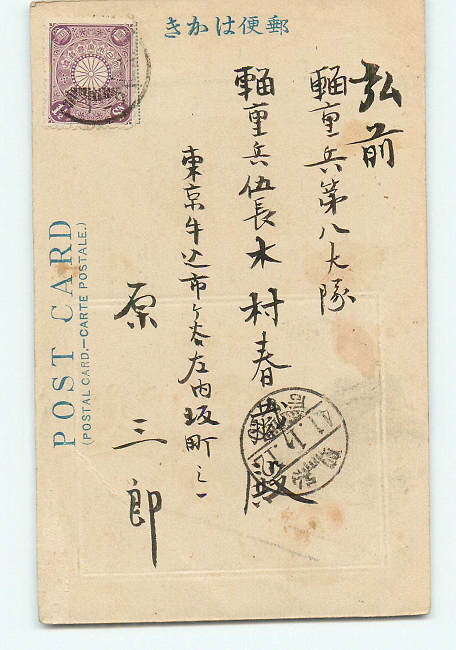 きかはは便郵
弘前
輜重兵第八大隊
輜重兵伍長木村春殿
東京牛込市ヶ谷左内坂町
原三郎
POST CARD
(POSTAL CARD.—CARTE POSTALE.)